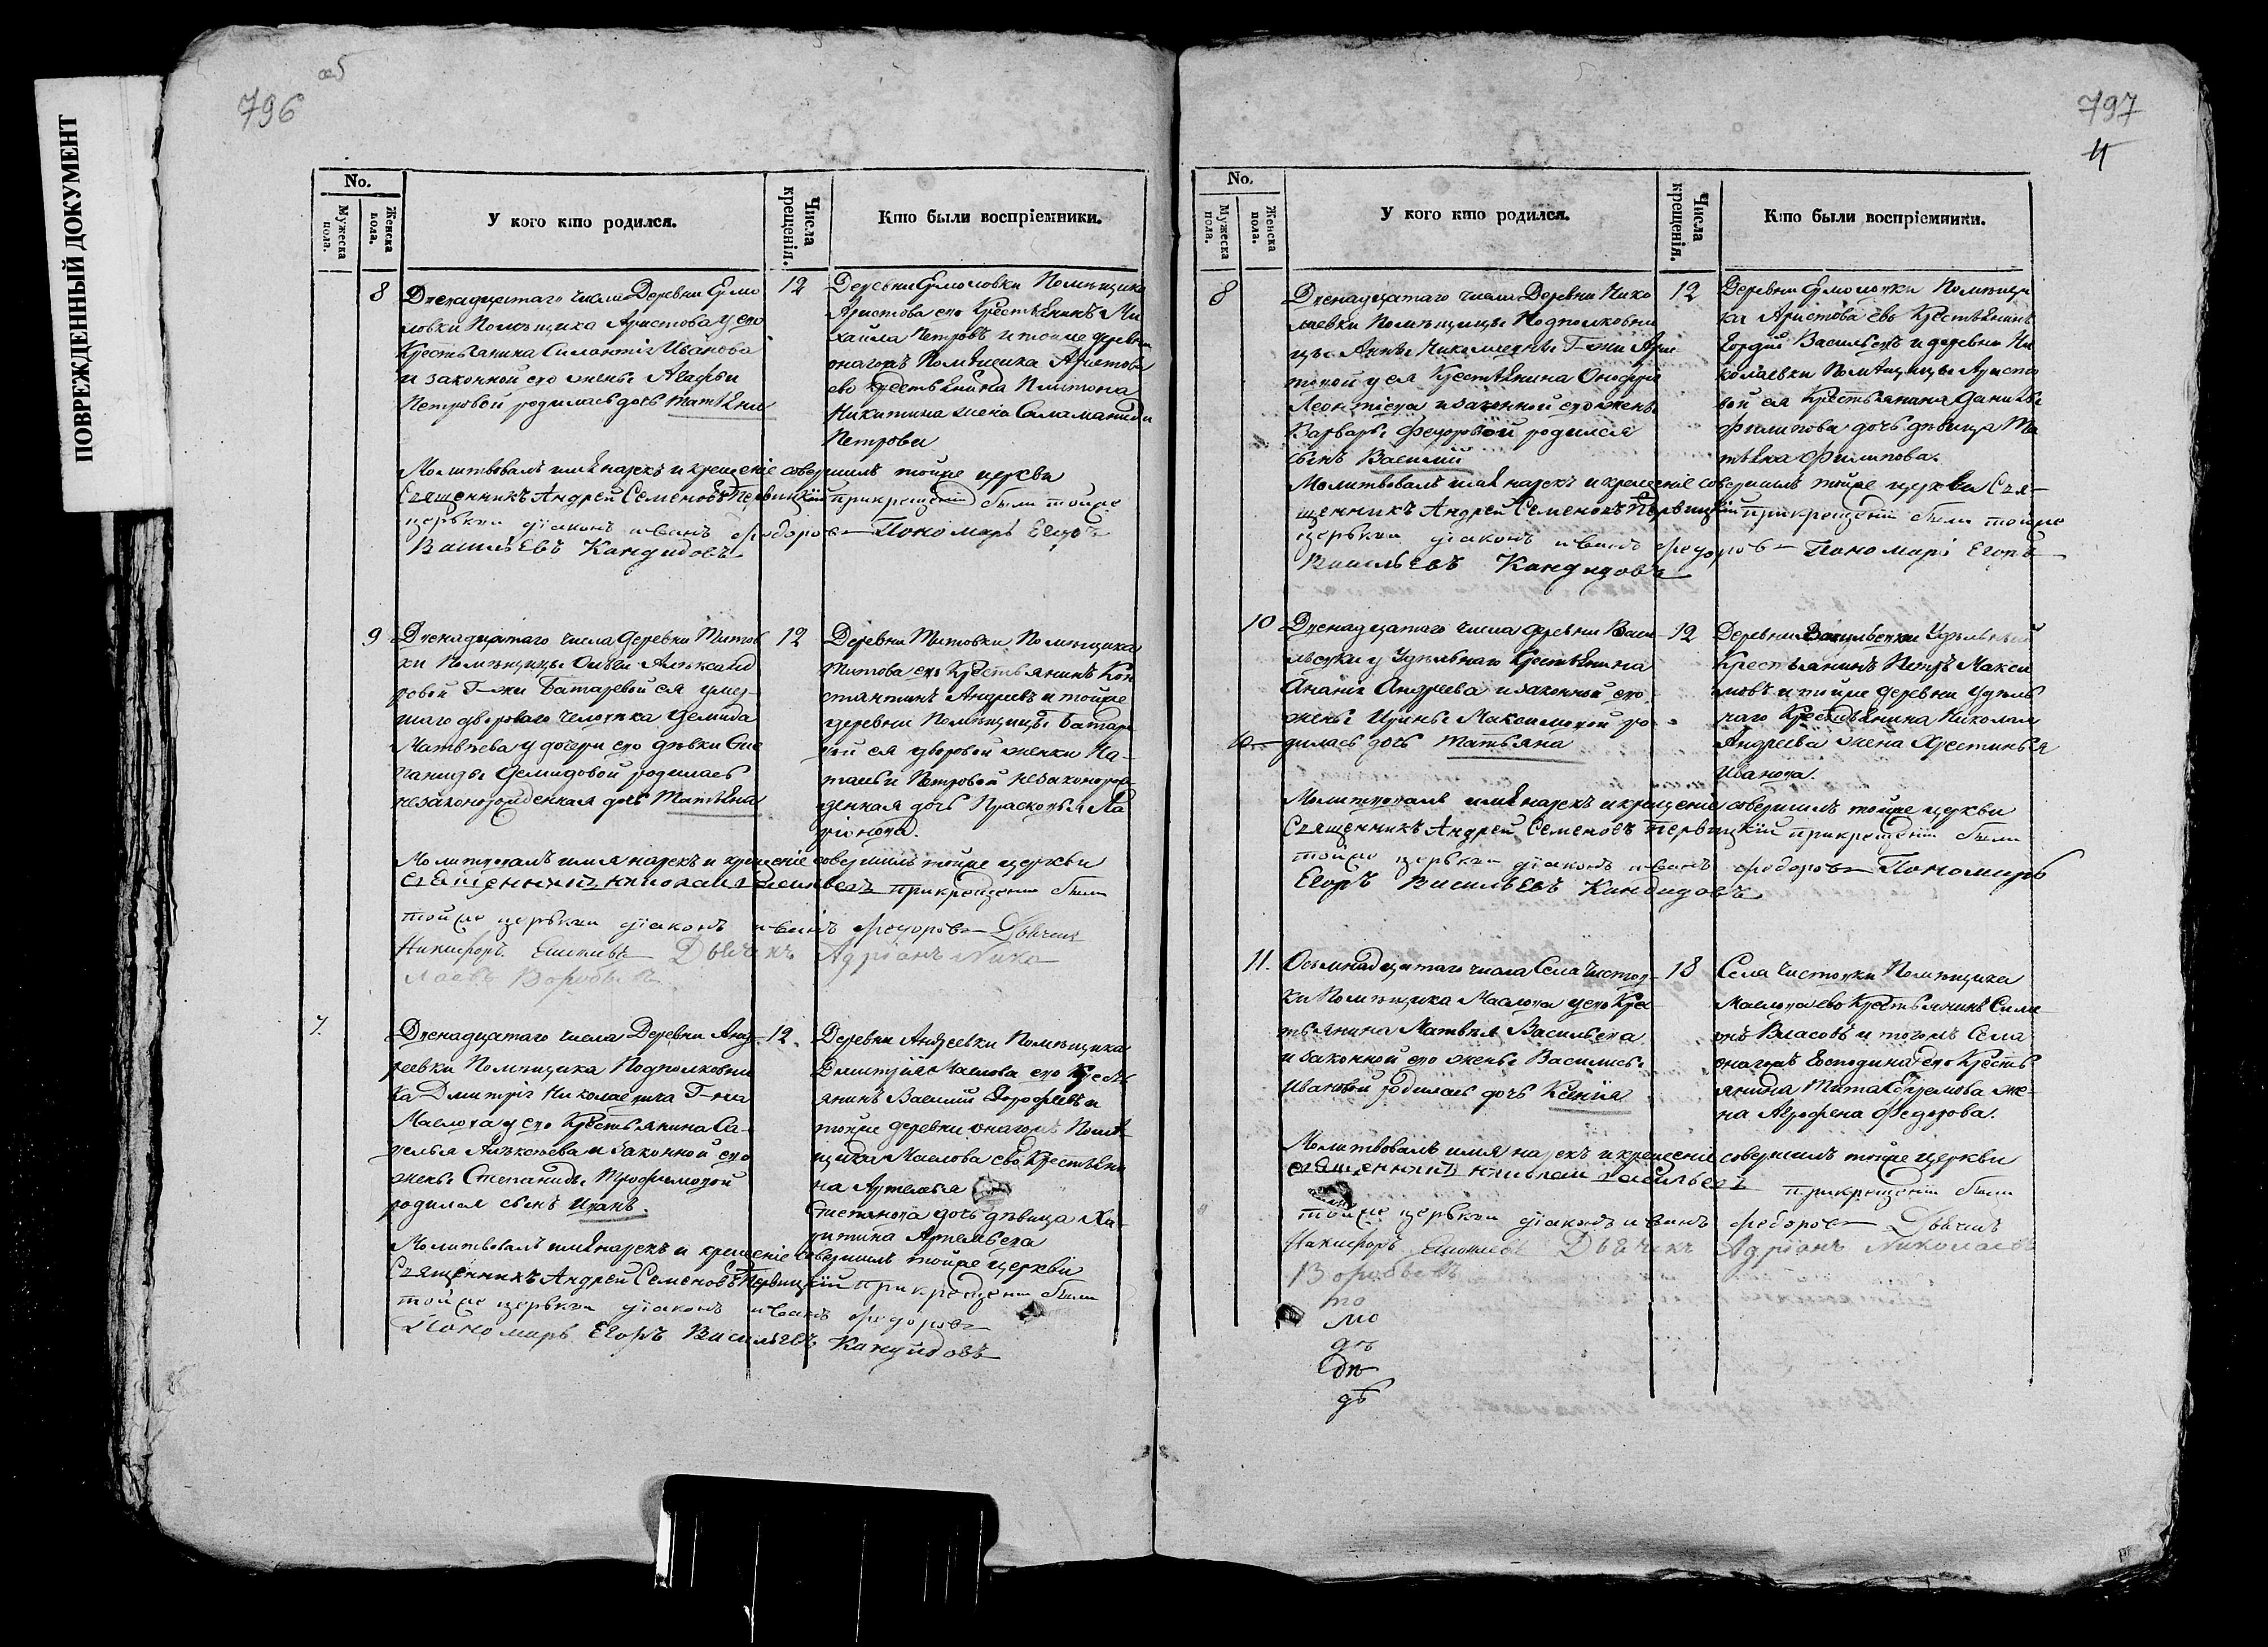 ПОВРЕЖДЕННЫЙ ДОКУМЕНТ
796
No.
Мужеска пола.
Женска пола.
У кого кто родился.
Числа крещенія.
Кто были воспріемники.
8
Двенадцатаго числа Деревни Ермо
ловки Помѣщика Аристова у его
Крестьянина Силантія Иванова
и законной его жены Агафьи
Петровой родилась дочь Татьяна
12
Деревни Ермоловки Помѣщика
Аристова его Крестьянинъ Ми
хайла Петровъ и тойже деревни
онагожъ Помѣщика Аристова
его Крестьянина Платона
Никитина жена Саламанида
Петрова
Молитвовалъ имя нарекъ и крещеніе совершилъ тойже церкви
Священникъ Андрей Семеновъ Первицкій при крещеніи были тойже
церькви діаконъ иванъ федоровъ Пономарь Егоръ
Васильевъ Кандидовъ
9
Двенадцатаго числа деревни Титов
ки Помѣщицы Александ
ровой Г-жи Батаревой ея умер
шаго двороваго человѣка Демида
Матвѣева у дочери его дѣвки Сте
паниды Демидовой родилась
незаконорожденная дочь Татьяна
12
Деревни Титовки Помѣщика
Титова его Крестьянинъ Кон
стантинъ Андреевъ и тойже
деревни Помѣщицы Батаре
вой ея дворовой женки На-
тальи Петровой незаконорож
денная дочь Прасковья Ла
ріонова.
Молитвовалъ имя нарекъ и крещеніе совершилъ тойже церкви
священникъ николай васильевъ при крещеніи были
тойже церькви діаконъ иванъ федоровъ Дьячекъ
Никифоръ Дьячекъ Адріанъ Нико
лаевъ Воробьевъ
7.
Двенадцатаго числа Деревни Анд
реевки Помѣщика Подполковни
ка Дмитрія Николаевича Г-на
Маслова у его Крестьянина Са-
велья Алексѣева и законной его
жены Степаниды Трофимовой
родился сынъ Иванъ.
12.
Деревни Андреевки Помѣщика
Дмитрія Маслова его Кресть
янинъ Василій Дорофѣевъ и
тойже деревни онагожъ Помѣ-
щика Маслова его Крестьяни
на Артемья
Степанова дочь дѣвица Ха-
ритина Артемьева
Молитвовалъ имя нарекъ и крещеніе совершилъ тойже церкви
Священникъ Андрей Семеновъ Первицкій при крещеніи были
тойже церькви діаконъ иванъ федоровъ
Пономарь Егоръ Васильевъ Кандидовъ
797
4
No.
Мужеска пола.
Женска пола.
У кого кто родился.
Числа крещенія.
Кто были воспріемники.
8
Двенадцатаго числа Деревни Нико
лаевки Помѣщицы Подполковни
цы Анны Николаевны Г-жи Арис
товой у ея Крестьянина Онофрія
Леонтіева и законной его жены
Варвары Федоровой родился
сынъ Василій
12
Деревни Ермоловки Помѣщи
ка Аристова его Крестьянинъ
Гордей Васильевъ и деревни Ни
колаевки Помѣщицы Аристо
вой ея Крестьянина Данилы
Филипова дочь дѣвица Та
тьяна Филипова.
Молитвовалъ имя нарекъ и крещеніе совершилъ тойже церкви Свя-
щенникъ Андрей Семеновъ Первицкій при крещеніи были тойже
церькви діаконъ иванъ федоровъ Пономарь Егоръ
Васильевъ Кандидовъ
10
Двенадцатаго числа деревни Васи
льевки у Удѣльнаго Крестьянина
Ананія Андреева и законной его
жены Ирины Максимовой ро
дилась дочь Татьяна
12
Деревни Васильевки Удѣльный
Крестьянинъ Петръ Макси
мовъ и тойже деревни Удѣль
наго Крестьянина Николая
Андреева жена Хрестинья
Иванова.
Молитвовалъ имя нарекъ и крещеніе совершилъ тойже церкви
Священникъ Андрей Семеновъ Первицкій при крещеніи были
тойже церькви діаконъ иванъ федоровъ Пономарь
Егоръ Васильевъ Кандидовъ
11.
Осьмнадцатаго числа Села Чистов
ки Помѣщика Маслова у его Крес
тьянина Матвѣя Васильева
и законной его жены Василисы
Ивановой родилась дочь Ксенія
18
Села Чистовки Помѣщика
Маслова его Крестьянинъ Симе
онъ Власовъ и тогожъ Села
онагожъ Господина его Кресть
янина Тита Ефремова же-
на Агрофена Федорова.
Молитвовалъ имя нарекъ и крещеніе совершилъ тойже церкви
священникъ николай васильевъ при крещеніи были
тойже церькви діаконъ иванъ федоровъ Дьячекъ
Никифоръ Дьячекъ Адріанъ Николаевъ
Воробьевъ
то
мо
дѣ
дѣ